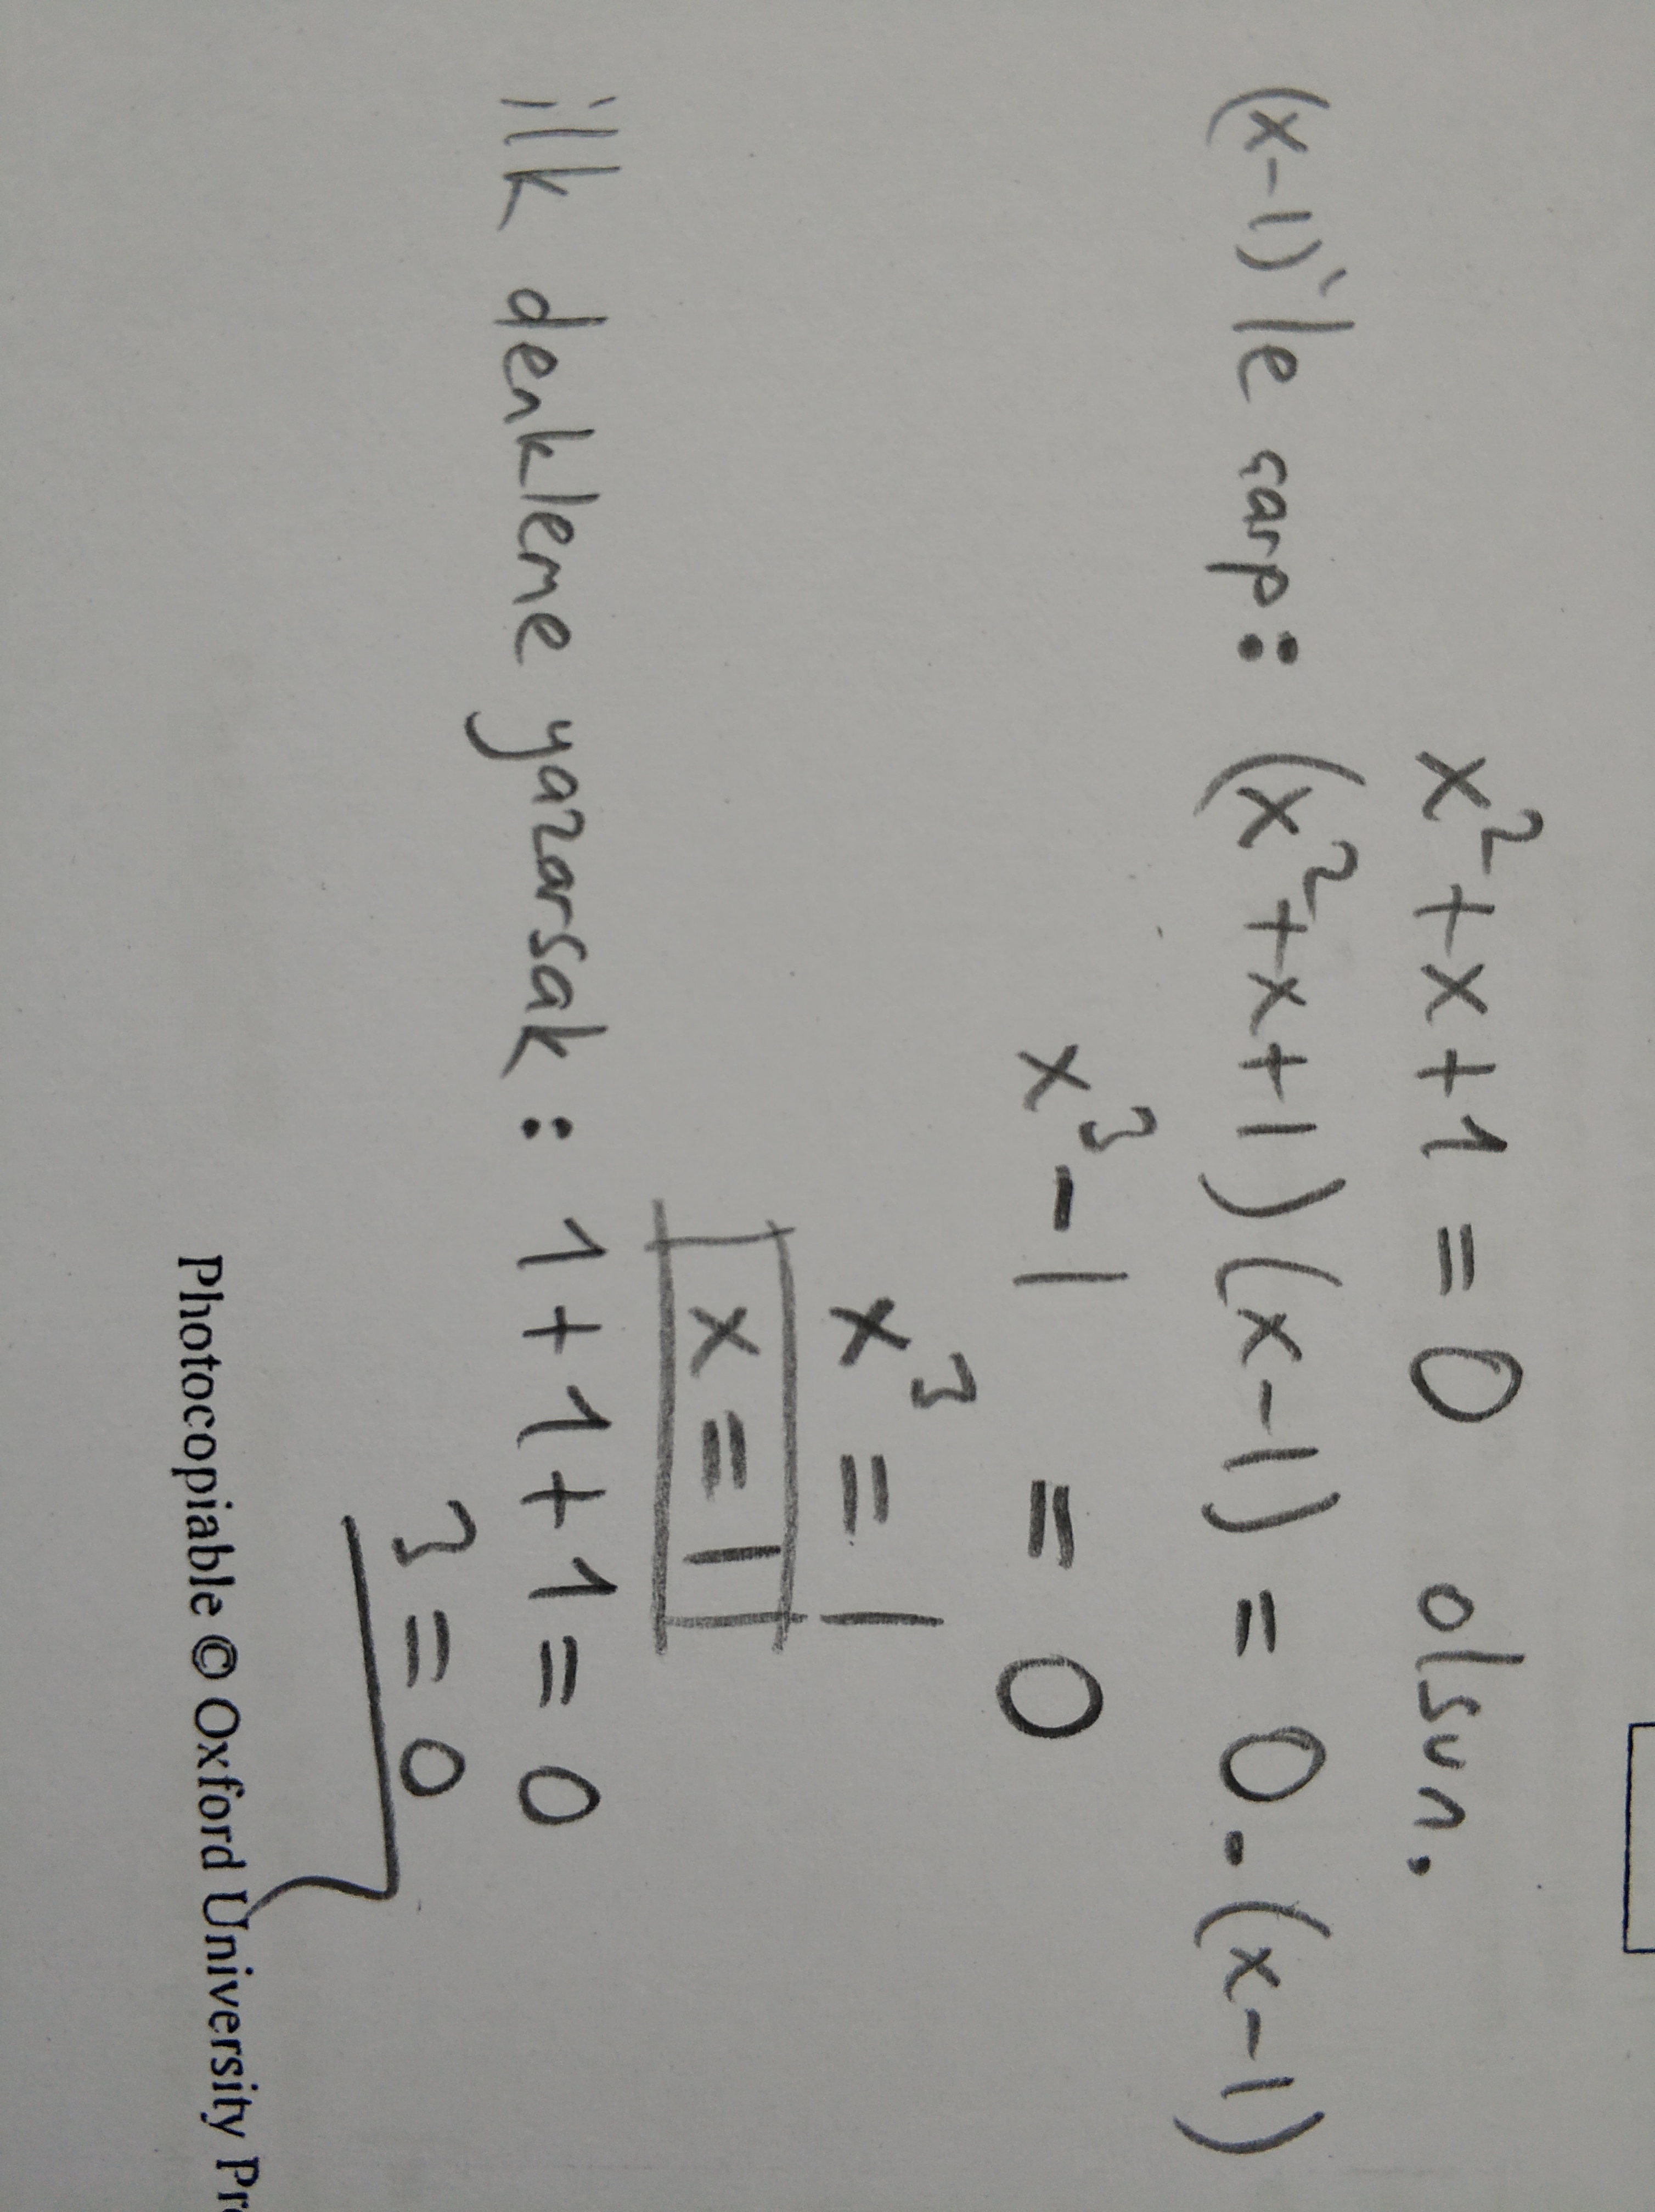 x²+x+1=0 olsun.
(x-1)'le çarp: (x²+x+1)(x-1)=0.(x-1)
x³-1 = 0
x³ = 1
x=1
ilk denkleme yazarsak: 1+1+1=0
3=0
Photocopiable © Oxford University Pre